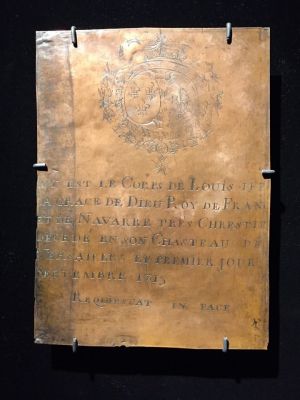 EST LE CORPS DE LOUIS
GRACE DE DIEU ROY DE FRAN
ET DE NAVARRE TRES CHRESTIE
DECEDE EN SON CHASTEAU DE
VERSAILLES LE PREMIER JOUR
SEPTEMBRE 1715
REQUIESCAT IN PACE